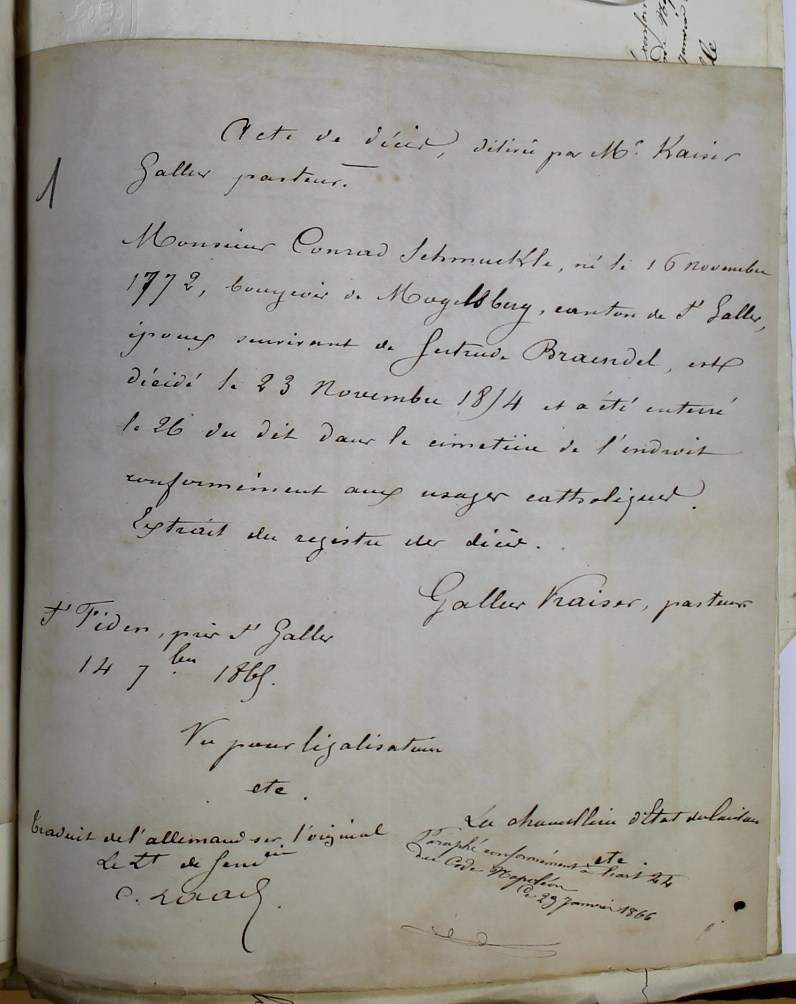 1
Acte de décès, délivré par Mr. Kaiser
Galler pasteur.
Monsieur Conrad Schmuckle, né le 16 novembre
1772, bourgeois de Mogelsberg, canton de St Galler,
époux survivant de Gertrude Braendel, est
décédé le 23 Novembre 1814 et a été enterré
le 26 du dit dans le cimetière de l'endroit
conformément aux usages catholiques.
Extrait du registre des décès.
Galler Kaiser, pasteur
St Fiden, près St Galler
14 7bre 1865.
Vu pour légalisation
etc.
La chancellerie d'Etat du Canton
etc.
Traduit de l'allemand sur l'original
Le Lt de Gend
Paraphé conformément à l'art 44
du Code Napoléon
le 29 janvier 1866